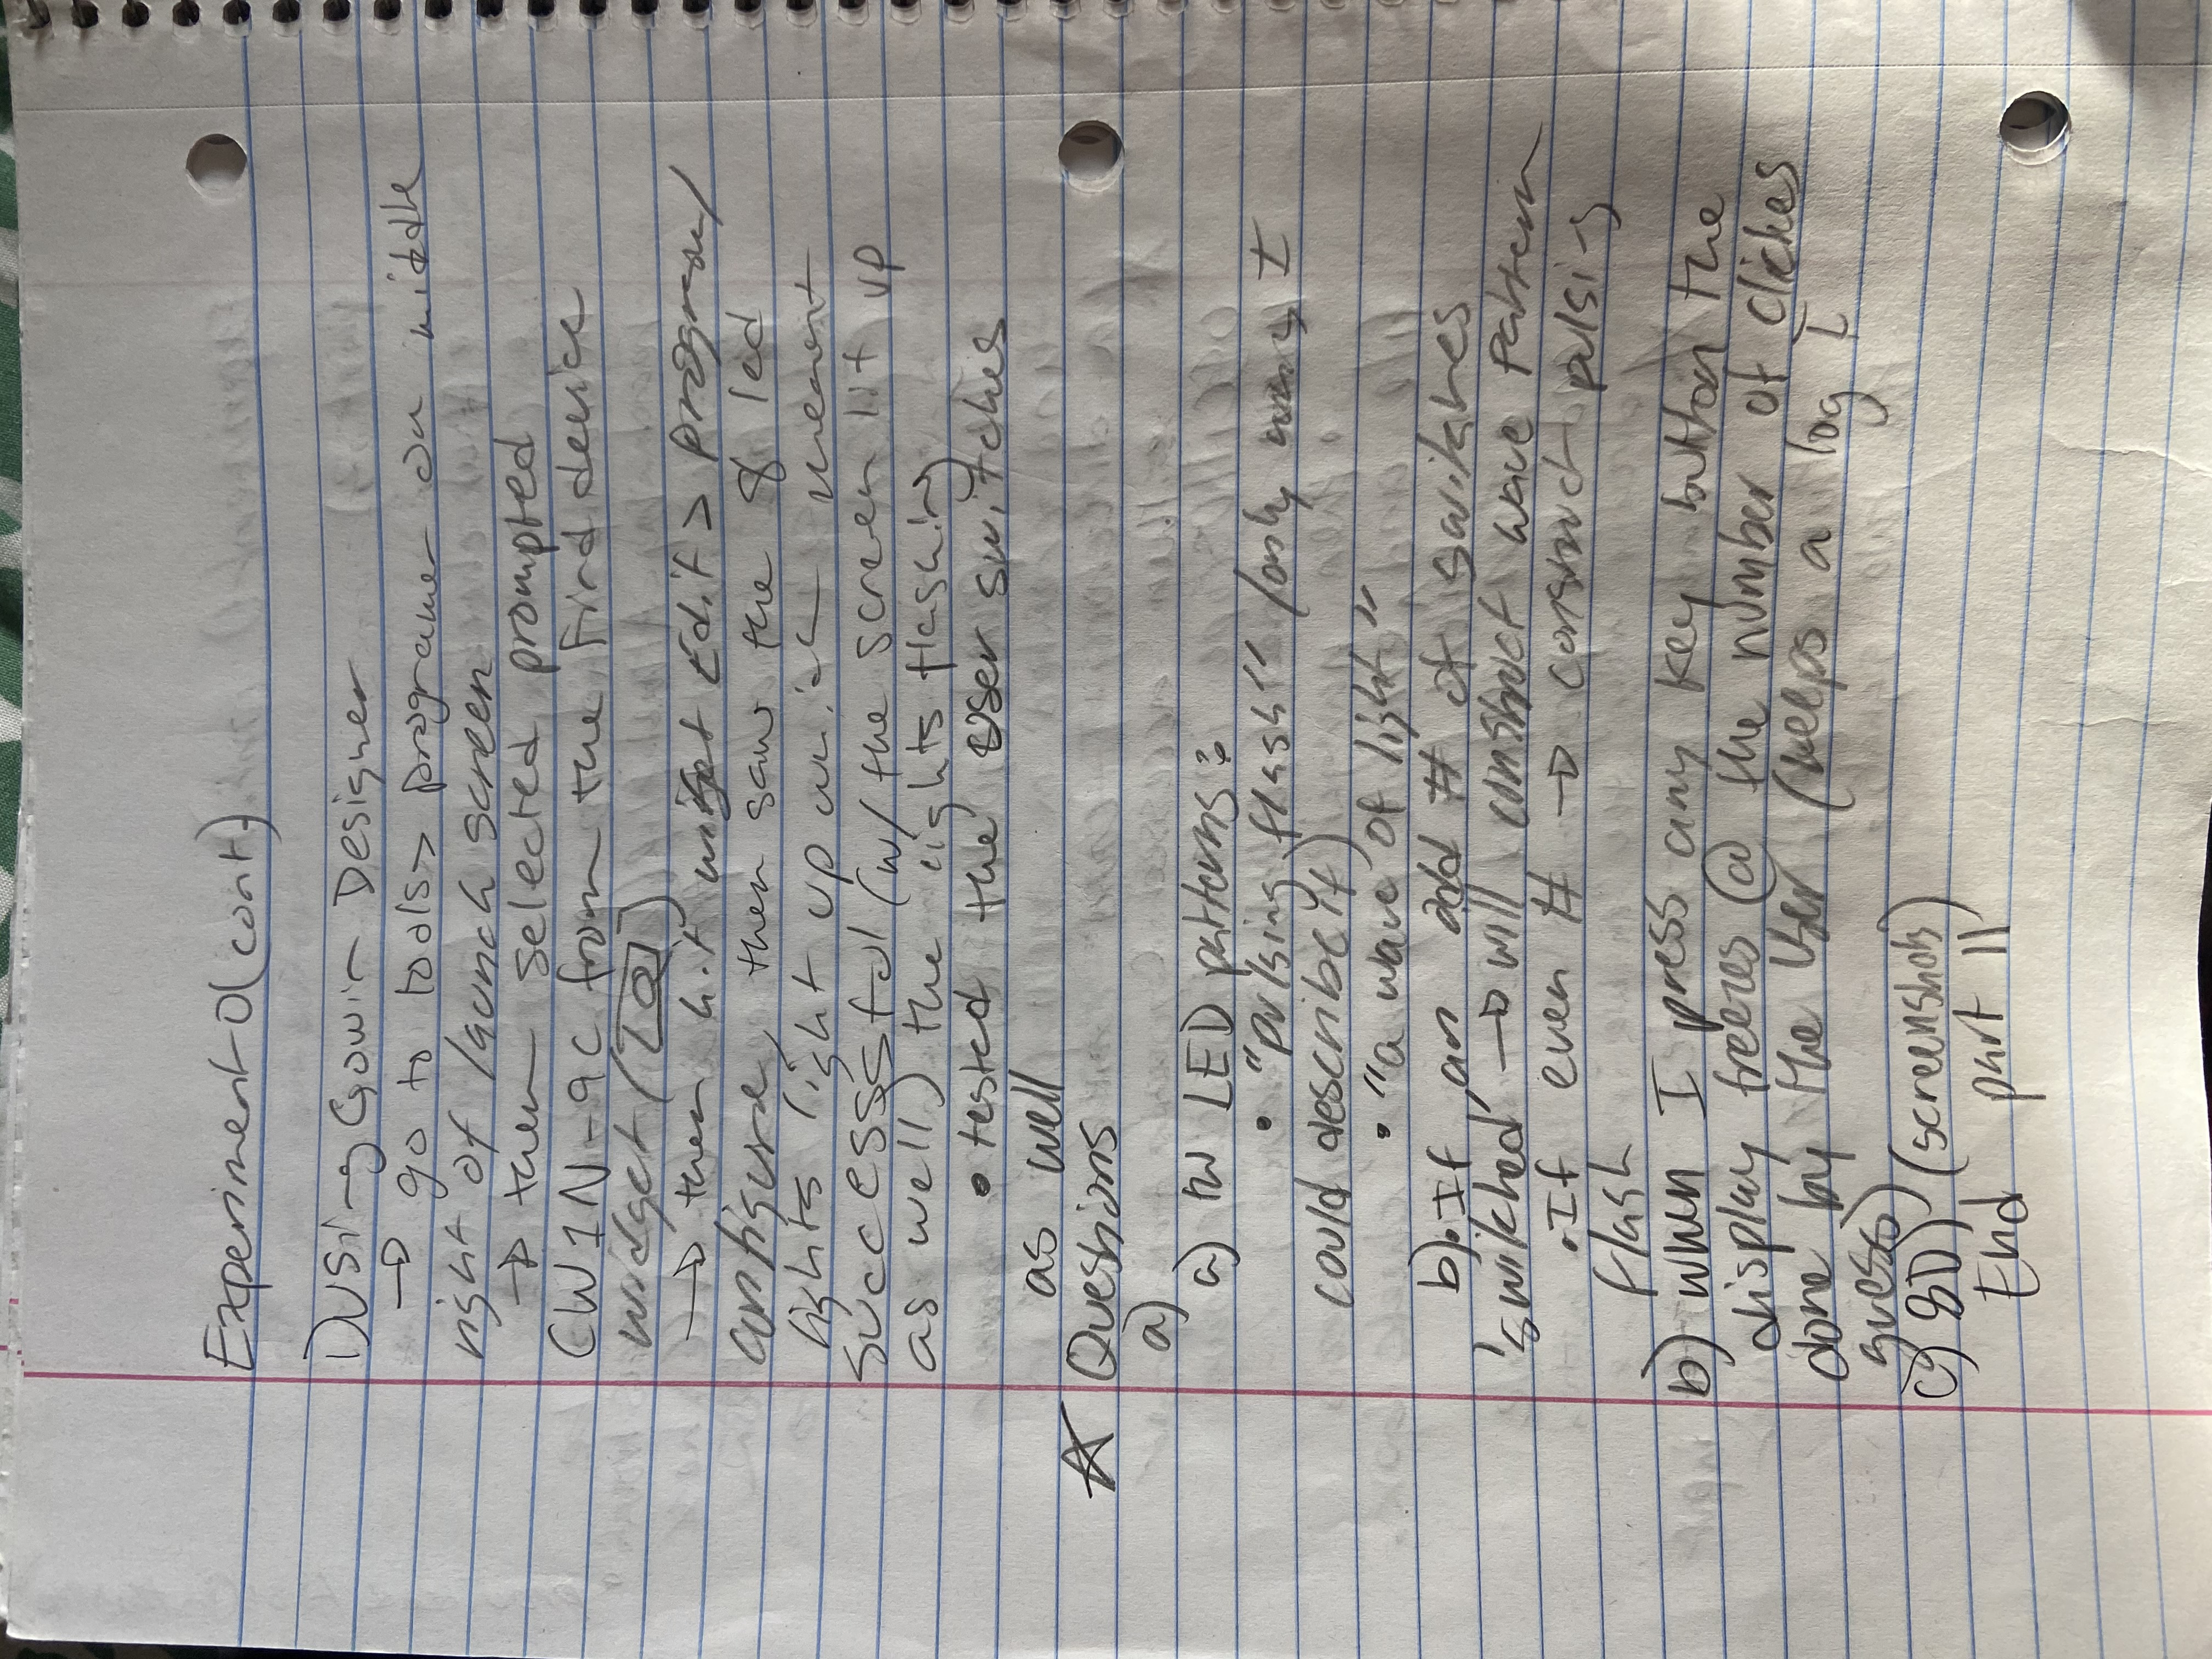 Experiment 0 (cont.)
D) Using Gowin Designer
→ go to tools > programer on middle
right of launch screen
→ then selected prompted
GW1N-9C from the Find device
widget ( )
→ then hit widget Edit > program/
configure, then saw the 8 led
lights light up which meant
successsful (w/ the screen lit up
as well) the lights flashing
• tested the user switches
as well
☆ Questions
a)
a) two LED patterns:
• "pulsing flash" (only way I
could describe it)
• "a wave of light"
b) • If an odd # of switches
'switched' → will construct wave pattern
• If even # → construct pulsing
flash
b) when I press any key button the
display freezes @ the number of clickes
done by the user (keeps a log I
guess)
c) 8D) (screenshots)
End part II